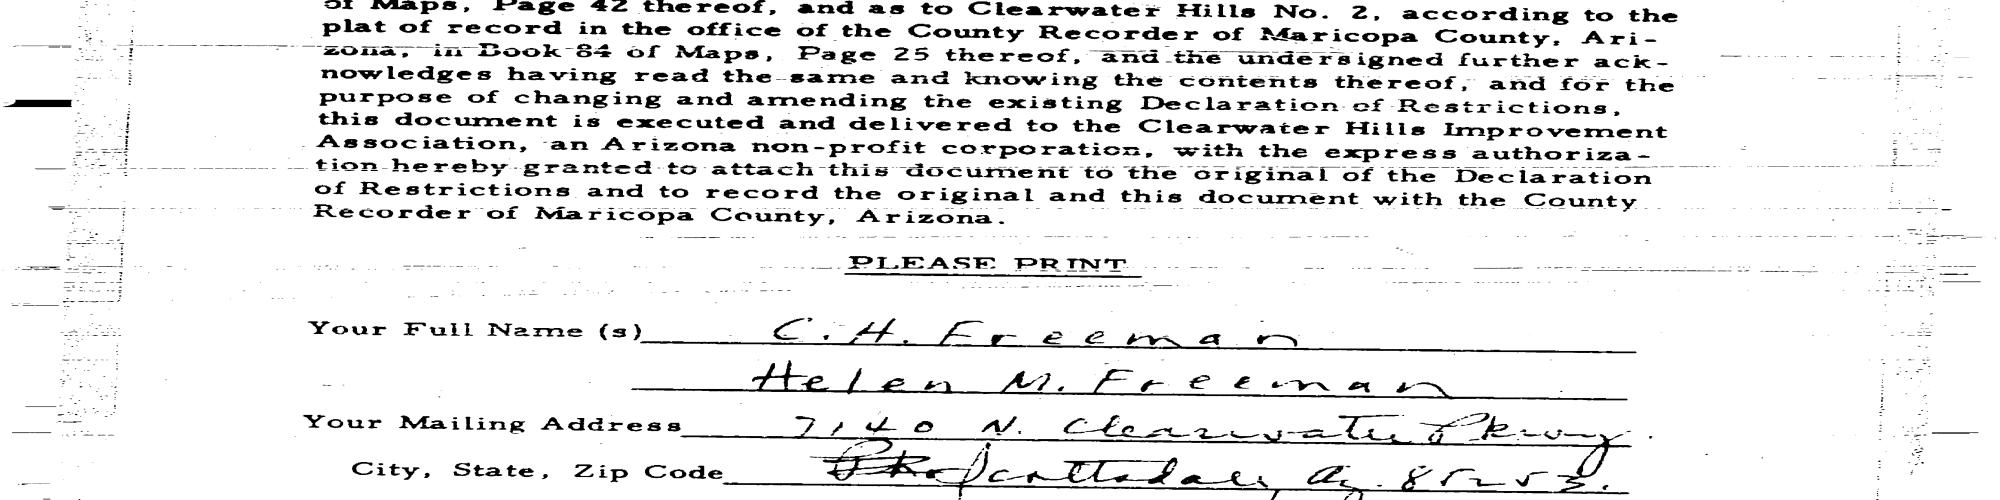 of Maps, Page 42 thereof, and as to Clearwater Hills No. 2, according to the
plat of record in the office of the County Recorder of Maricopa County, Ari-
zona, in Book 84 of Maps, Page 25 thereof, and the undersigned further ack-
nowledges having read the same and knowing the contents thereof, and for the
purpose of changing and amending the existing Declaration of Restrictions,
this document is executed and delivered to the Clearwater Hills Improvement
Association, an Arizona non-profit corporation, with the express authoriza-
tion hereby granted to attach this document to the original of the Declaration
of Restrictions and to record the original and this document with the County
Recorder of Maricopa County, Arizona.
PLEASE PRINT
Your Full Name (s) C. H. Freeman
Helen M. Freeman
Your Mailing Address 7140 N. Clearwater Pkwy.
City, State, Zip Code Scottsdale, Az. 85253.